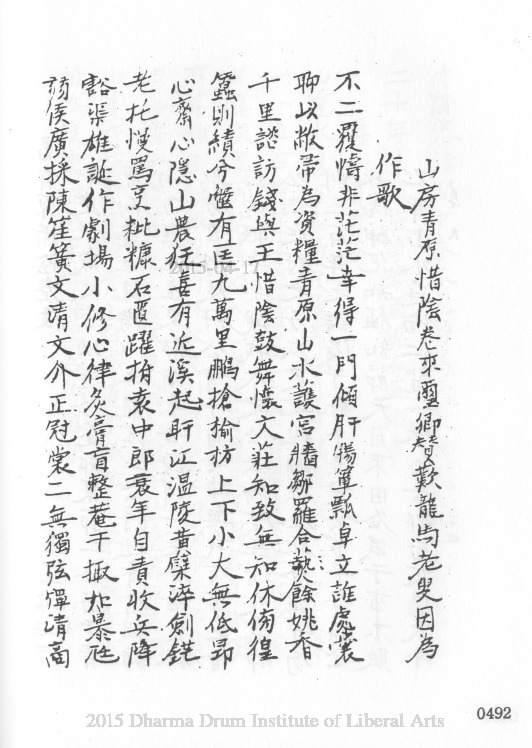 山房青原惜陰卷來璽卿贊歎龍馬老叟因為
作歌
不二覆幬非茫茫幸得一門傾肝腸簞瓢卓立誰處囊
聊以敝帚為資糧青原山水護宮牆鄒羅合藝餘姚香
千里證訪錢與王惜陰鼓舞懷文莊知致無知休徬徨
蠶則績兮蟹有匡九萬里鵬搶榆枋上下小大無低昂
心齋心隱山農狂喜有近溪起旴江溫陵黃檗淬劍鋩
老杜慢罵烹粃糠石匱躍拍袁中郎衰年自責收兵降
豁渠雄誕作劇場小修心律灸膏肓整菴干掫
弱侯廣採陳笙簧文清文介正冠裳二無獨弦憚清商
2015-04-17
2015 Dharma Drum Institute of Liberal Arts
0492